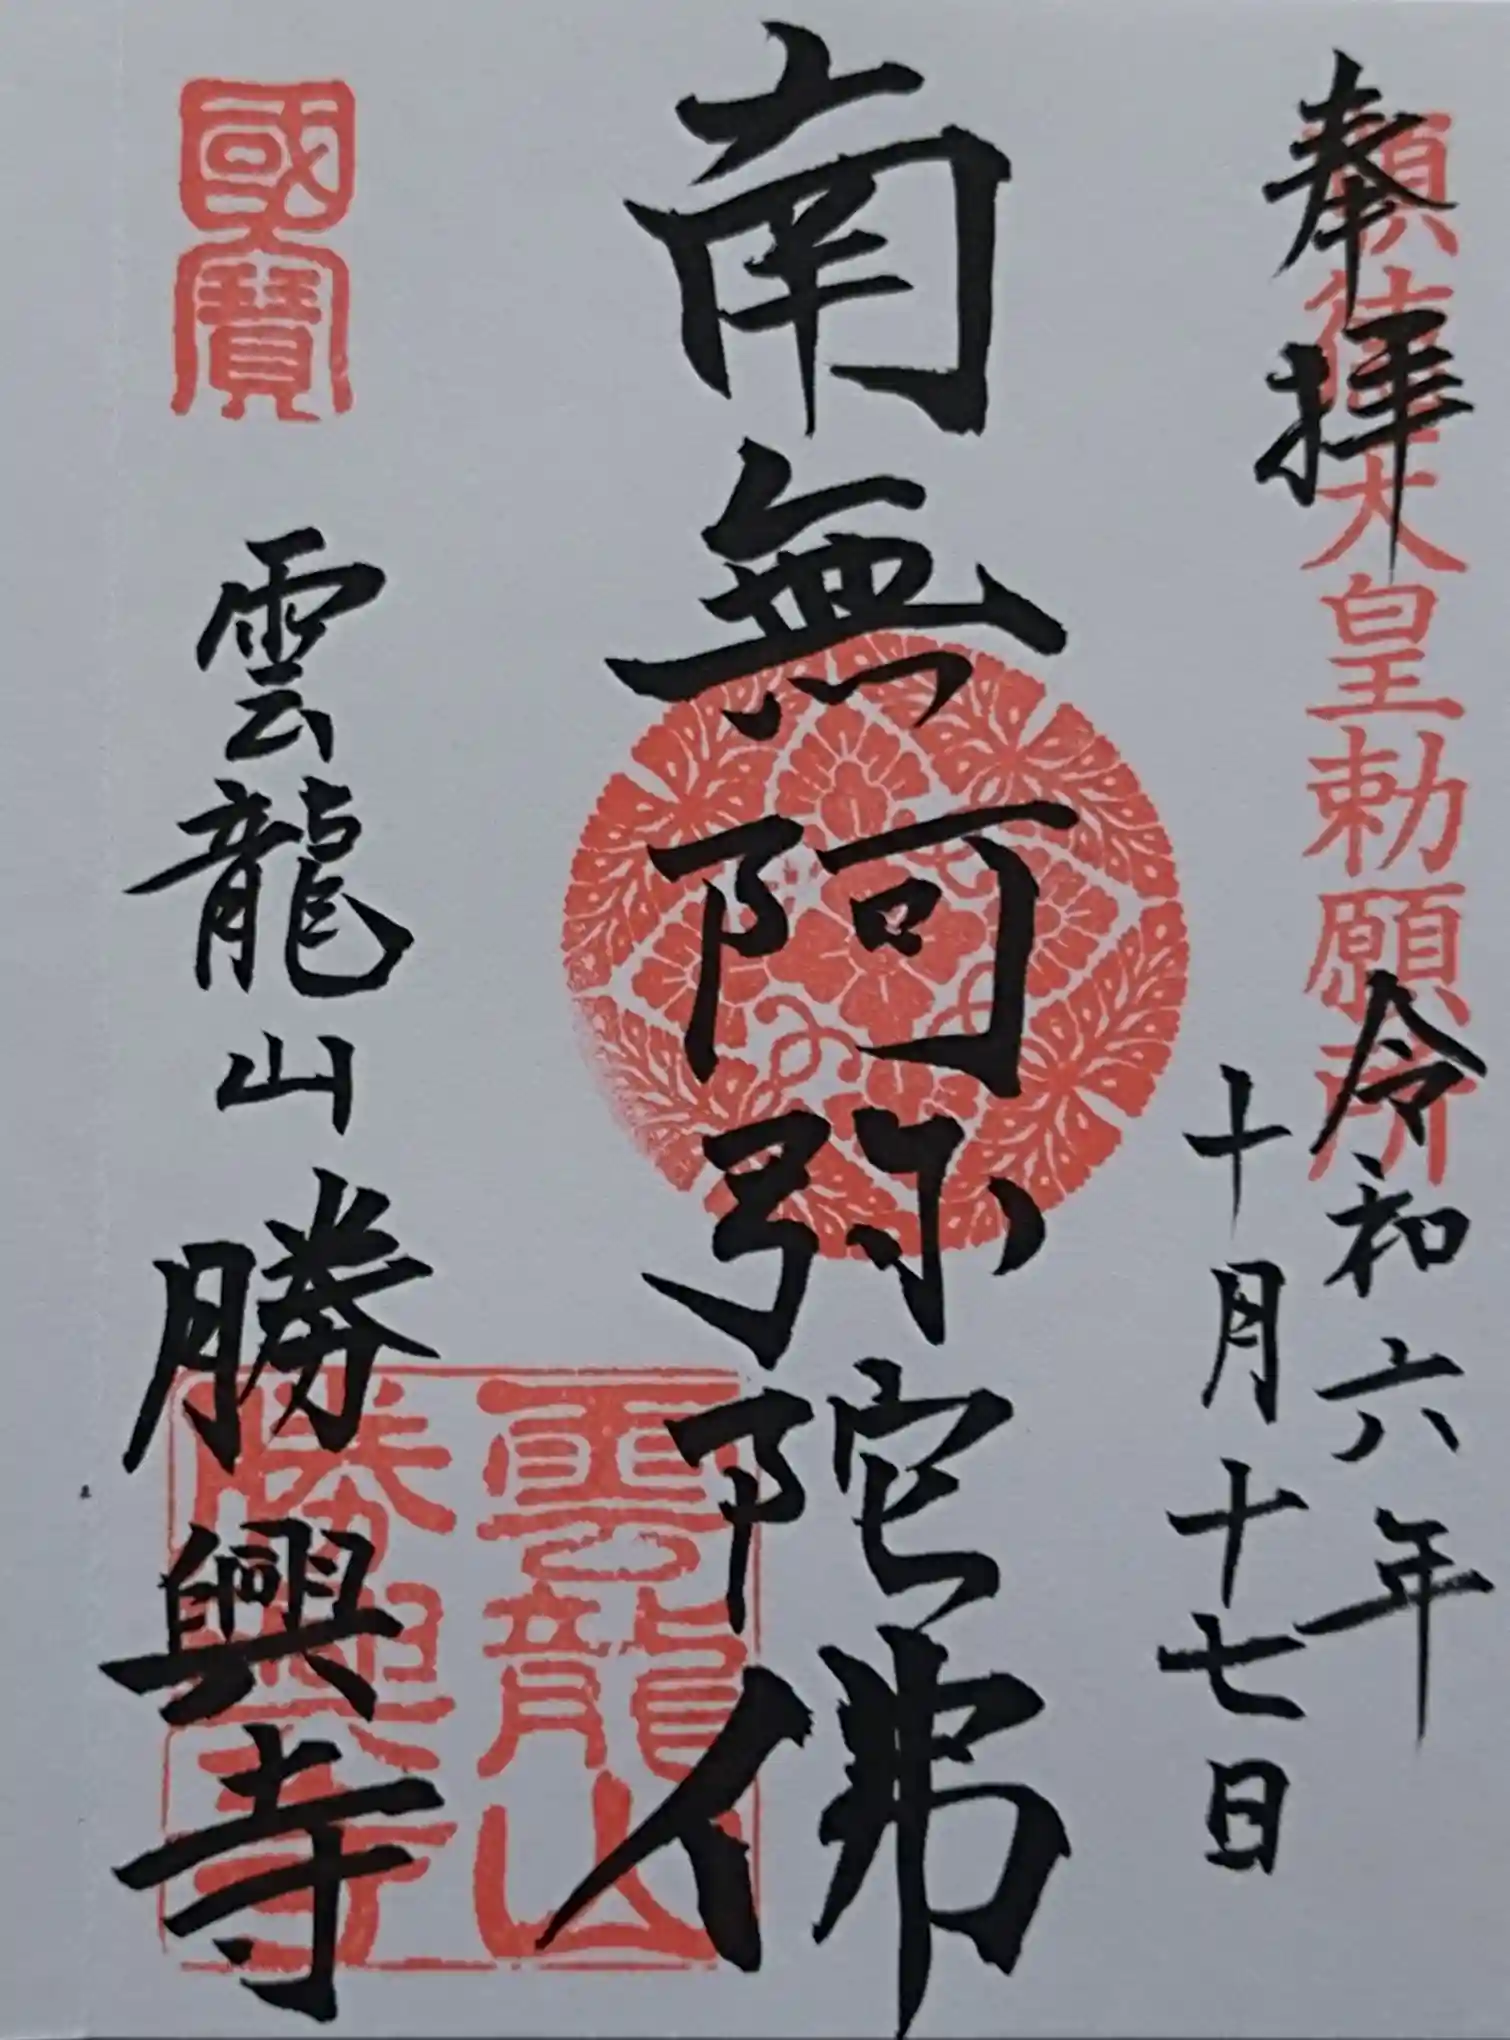 奉拝
順徳天皇勅願所
令和六年
十月十七日
南無阿弥陀佛
國寶
雲龍山
勝興寺
雲龍山
勝興寺